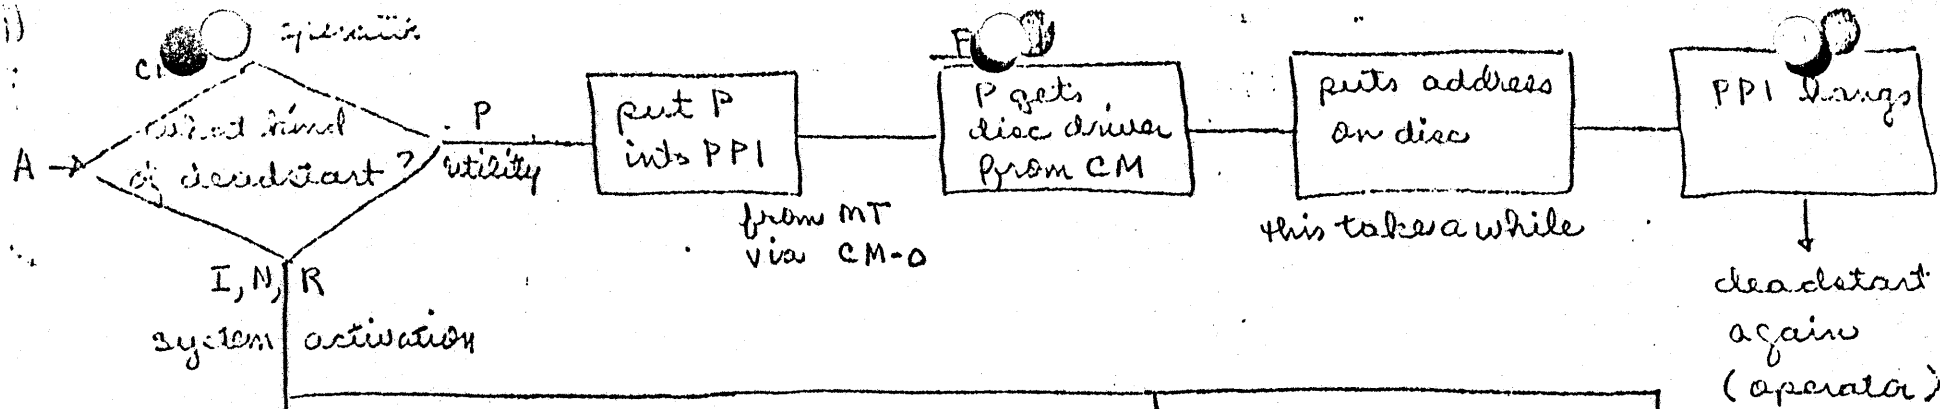 1)
C1
operator
A → What kind
of deadstart?
P
utility
put P
into PP1
from MT
via CM-0
P gets
disc driver
from CM
puts address
on disc
this takes a while
PP1 hangs
deadstart
again
(operator)
I, N, R
system activation